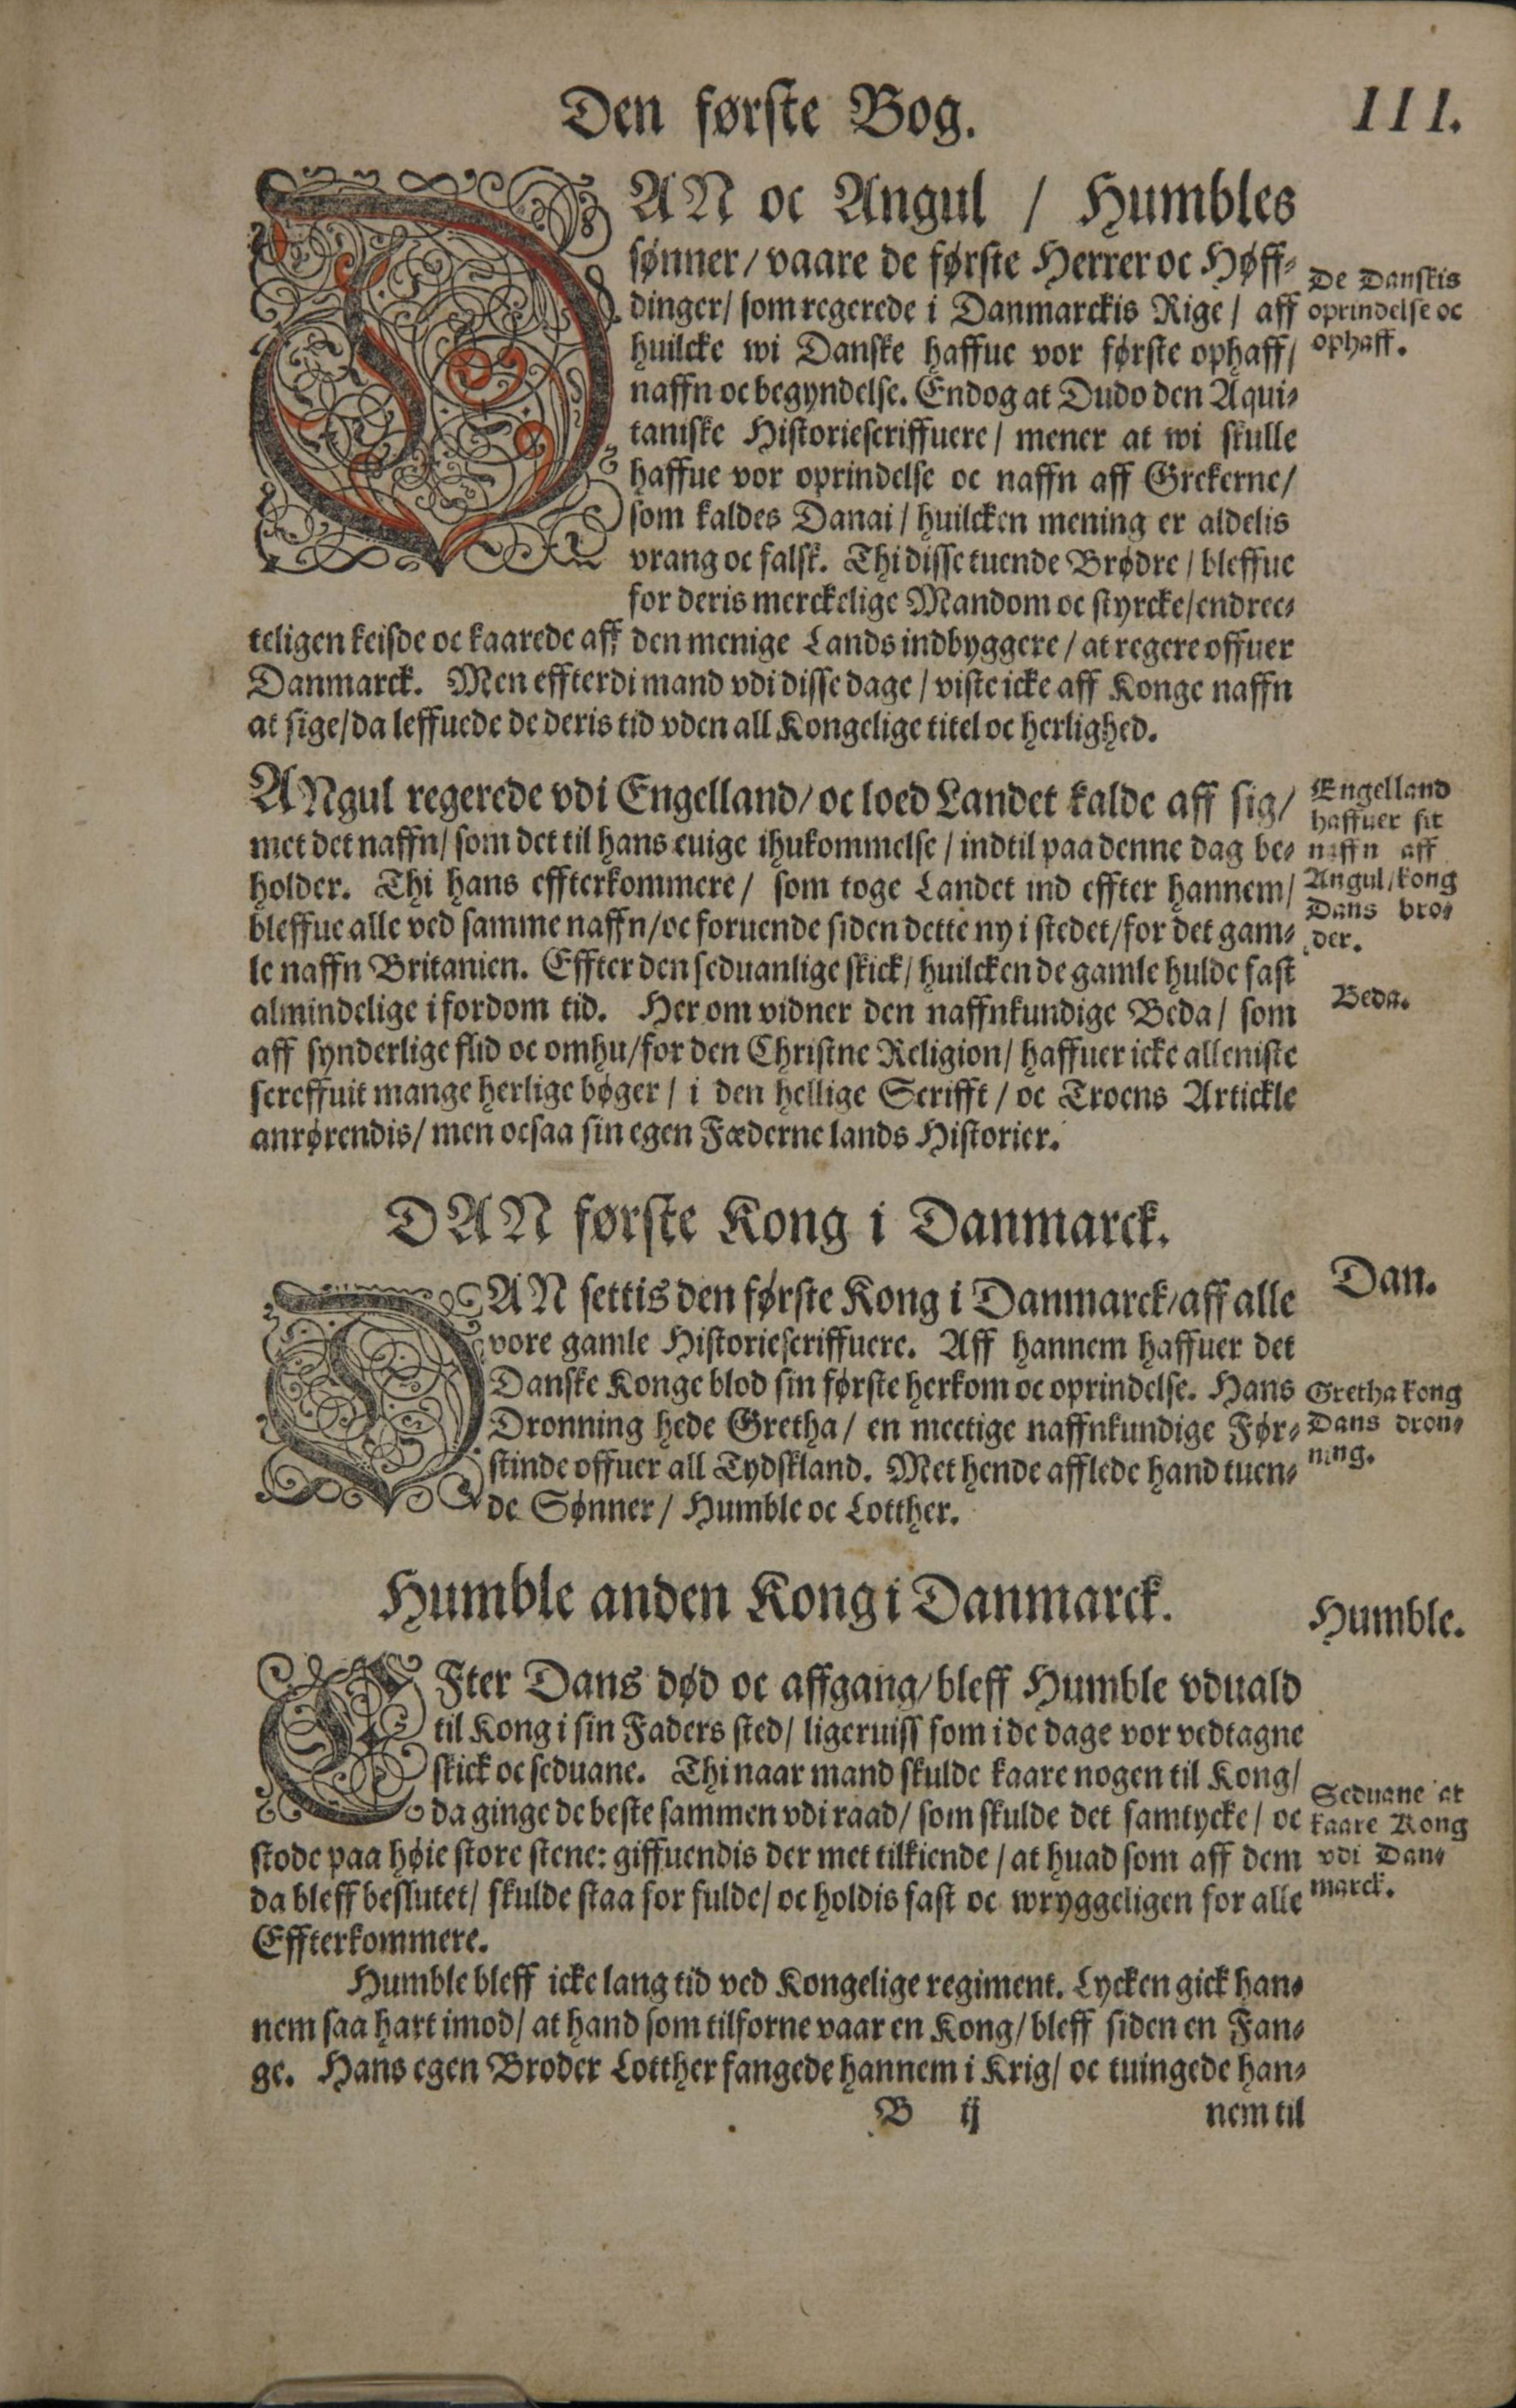 Den første Bog.
III.
DAN oc Angul / Humbles
sønner / vaare de første Herrer oc Høff-
dinger / som regerede i Danmarckis Rige / aff
huilcke wi Danske haffue vor første ophaff /
naffn oc begyndelse. Endog at Dudo den Aqui-
taniske Historiescriffuere / mener at wi skulle
haffue vor oprindelse oc naffn aff Grekerne /
som kaldes Danai / huilcken mening er aldelis
vrang oc falsk. Thi disse tuende Brødre / bleffue
for deris merckelige Mandom oc styrcke / endrec-
teligen keisde oc kaarede aff den menige Lands indbyggere / at regere offuer
Danmarck. Men effterdi mand vdi disse dage / viste icke aff Konge naffn
at sige / da leffuede de deris tid vden all Kongelige titel oc herlighed.
De Danskis
oprindelse oc
ophaff.
ANgul regerede vdi Engelland / oc loed Landet kalde aff sig /
met det naffn / som det til hans euige ihukommelse / indtil paa denne dag be-
holder. Thi hans effterkommere / som toge Landet ind effter hannem /
bleffue alle ved samme naffn / oc foruende siden dette ny i stedet / for det gam-
le naffn Britanien. Effter den seduanlige skick / huilcken de gamle hulde fast
almindelige i fordom tid. Her om vidner den naffnkundige Beda / som
aff synderlige flid oc omhu / for den Christne Religion / haffuer icke alleniste
screffuit mange herlige bøger / i den hellige Scrifft / oc Troens Artickle
anrørendis / men ocsaa sin egen Fæderne lands Historier.
Engelland
haffuer sit
naffn aff
Angul / kong
Dans bro-
der.
Beda.
DAN første Kong i Danmarck.
DAN settis den første Kong i Danmarck / aff alle
vore gamle Historiescriffuere. Aff hannem haffuer det
Danske Konge blod sin første herkom oc oprindelse. Hans
Dronning hede Gretha / en mectige naffnkundige Før-
stinde offuer all Tydskland. Met hende afflede hand tuen-
de Sønner / Humble oc Lotther.
Dan.
Gretha kong
Dans dron-
ning.
Humble anden Kong i Danmarck.
Humble.
EFter Dans død oc affgang / bleff Humble vduald
til Kong i sin Faders sted / ligeruiss som i de dage vor vedtagne
skick oc seduane. Thi naar mand skulde kaare nogen til Kong /
da ginge de beste sammen vdi raad / som skulde det samtycke / oc
stode paa høie store stene: giffuendis der met tilkiende / at huad som aff dem
da bleff beslutet / skulde staa for fulde / oc holdis fast oc wryggeligen for alle
Effterkommere.
Seduane at
kaare Kong
vdi Dan-
marck.
Humble bleff icke lang tid ved Kongelige regiment. Lycken gick han-
nem saa hart imod / at hand som tilforne vaar en Kong / bleff siden en Fan-
ge. Hans egen Broder Lotther fangede hannem i Krig / oc tuingede han-
B ij
nem til